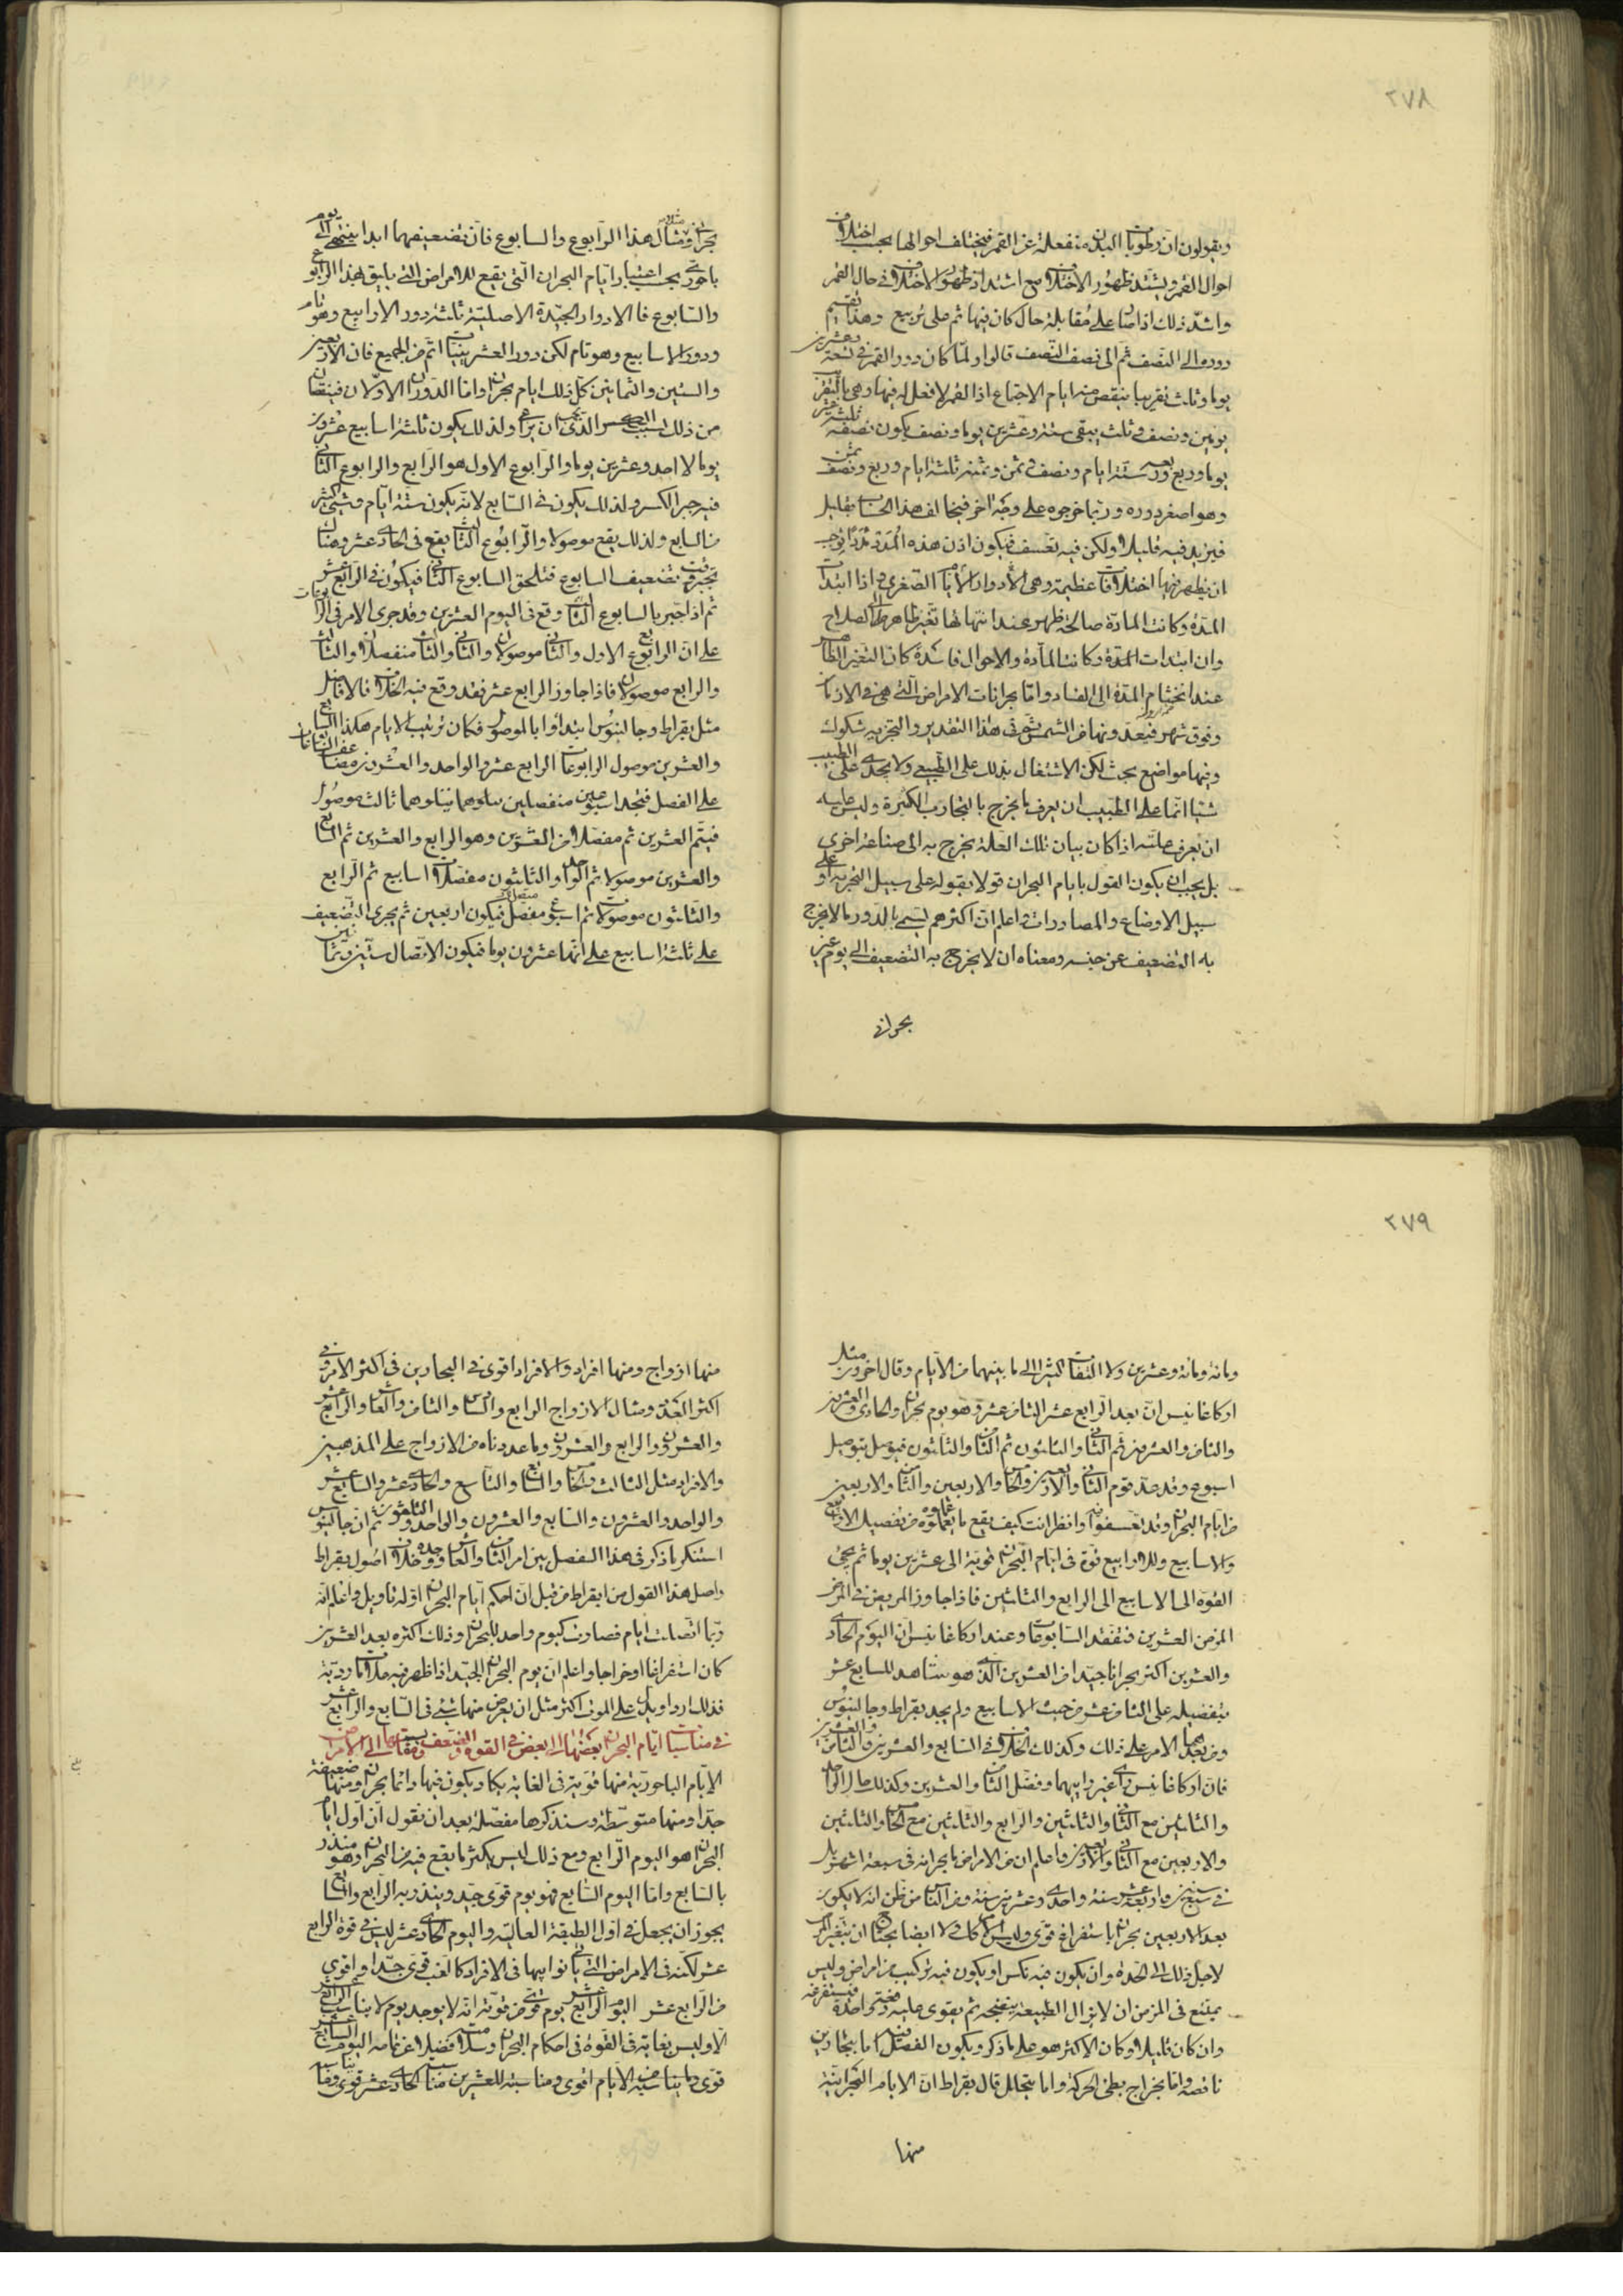 ٢٧٨
ويقولون ان رطوبات البدن منفعلة عن القمر فيختلف احوالها بحسب اختلاف
احوال القمر ويشتد ظهور الاختلاف مع اشتداد ظهور الاختلاف في حال القمر
واشد ذلك اذا صار على مقابلة حال كان فيها ثم على تربيع وهذا تقسيم
دوره الى النصف ثم الى نصف النصف قالوا ولما كان دور القمر في تسعة وعشرين
يوما وثلث تقريبا ينقص منه ايام الاجتماع اذا القمر لا فعل له فيها وهي بالتقريب
يومين ونصف وثلث يبقى ستة وعشرين يوما ونصف يكون نصفه ثلثة عشر
يوما وربع وربعه ستة ايام ونصف وثمن وثمنه ثلثة ايام وربع ونصف ثمن
وهو اصغر دوره وربما خرجوه على وجه اخر فيخالف هذا الحساب بقليل
فيزيد فيه قليلا ولكن فيه تعسف فيكون اذن هذه المدد مددا توجب
ان يظهر فيها اختلافات عظيمة وهي الادوار الايام الصغرى واذا ابتدات
المدة وكانت المادة صالحة ظهر عند انتهائها تغير ظاهر الى الصلاح
وان ابتدات المدة وكانت المادة والاحوال فاسدة كان التغير الظاهر
عند اختتام المدة الى الفساد واما بحرانات الامراض التي هي في الازمان
وفوق شهر فيعد ونها من الشمس ثم في هذا التقدير والتجزية شكوك
وفيها مواضع بحث لكن الاشتغال بذلك على الطبيعي ولا يجدى على الطبيب
شيئا انما على الطبيب ان يعرف ما يخرج بالتجارب الكثيرة وليس عليه
ان يعرف علته اذا كان بيان تلك العلة يخرج به الى صناعة اخرى
بل يجب ان يكون القول بايام البحران قولا يقوله على سبيل التجربة او على
سبيل الاوضاع والمصادرات واعلم ان اكثرهم يسمى بالدور ما لا يخرج
به التضعيف عن جنسه ومعناه ان لا يخرج به التضعيف الى يوم غير
بحراني
بحراني ومثال هذا الرابوع والسابوع فان تضعيفهما ابدا ينتهي الى يوم
باحورى بحسب اعتبار ايام البحران التي يقع للامراض التي يليق بهذا الرابوع
والسابوع فالادوار الجيدة الاصلية ثلثة دور الارابيع وهو تام
ودور الاسابيع وهو تام لكن دور العشرينيات اتم من الجميع فان الاربعين
والستين والثمانين كل ذلك ايام بحران واما الدوران الاولان فينقصان
من ذلك بسبب الكسر الذي يجب ان يراعى ولذلك يكون ثلثة اسابيع عشرون
يوما لا احد وعشرين يوما والرابوع الاول هو الرابع والرابوع الثاني
فيه جبر الكسر ولذلك يكون في السابع لانه يكون ستة ايام وشيئا كثير
من السابع ولذلك يقع موصولا والرابوع الثالث يقع في الحادى عشر وهناك
تجبر وقت تضعيف السابوع فتلحق السابوع الثاني فيكون في الرابع عشر
ثم اذا جبر بالسابوع الثالث وقع في اليوم العشرين وقد جرى الامر في الرابوعات
على ان الرابوع الاول والثاني موصولان والثاني والثالث منفصلان والثالث
والرابع موصولان فاذا جاوز الرابع عشر فقد وقع فيه الخلاف فالافاضل
مثل بقراط وجالينوس ابتداوا بالموصول فكان ترتيب الايام هكذا السابع
والعشرين موصول الرابوعات الرابع عشر والواحد والعشرون مضاعف السابوعات
على الفصل فتجد اسبوعين منفصلين يتلوهما ثالث موصول
فيتم العشرين ثم مفصلا من العشرين وهو الرابع والعشرين ثم السابع
والعشرين موصولا ثم الواحد والثلثون مفصلات اسابيع ثم الرابع
والثلثون موصولات ثم اسبوع مفصل فيكون اربعين ثم يجرى التضعيف
على ثلثة اسابيع على انها عشرون يوما فيكون الاتصال ستين وثمانين
٢٧٩
ومائة ومائة وعشرين ولا التفات كثيرا الى ما بينهما من الايام وقال اخرون مثل
اركاغانيس ان بعد الرابع عشر الثامن عشر وهو يوم بحران والحادى والعشرين
والثامن والعشرين ثم الثاني والثلثون ثم الثامن والثلثون فيوصل بتوصيل
اسبوع وقد عد قوم الثاني والاربعين والخامس والاربعين والثامن والاربعين
من ايام البحران وقد تعسفوا فيه وانظر انت كيف يقع ما يتعاطوه من تفصيل الارابيع
والاسابيع وللارابيع قوة في ايام البحران قوية الى عشرين يوما ثم يجئ
القوة الى الاسابيع الى الرابع والثلثين فاذا جاوز المريض في المرض
المزمن العشرين فتفقد السابوعات وعند اركاغانيس ان اليوم الحادى
والعشرين اكثر بحرانا جيدا من العشرين الذى هو شاهد للسابع عشر
بتفضيله على الثامن عشر من حيث الاسابيع ولم يجد بقراط وجالينوس
ومن بعدهما الامر على ذلك وكذلك الخلاف في السابع والعشرين والثامن والعشرين
فان اركاغانيس واى غير رايهما وفضل الثامن والعشرين وكذلك حال الواحد
والثلثين مع الثاني والثلثين والرابع والثلثين مع الخامس والثلثين
والاربعين مع الثاني والاربعين واعلم ان من الامراض ما بحرانه في سبعة اشهر بل
في سبع سنين واربعة عشر سنة واحدى وعشرين سنة ومن الناس من ظن انه لا يكون
بعد الاربعين بحران باستفراغ قوى وليس كذلك ولا ايضا يحتاج ان يتغير المرض
لاجل ذلك الى الحدة وان يكون فيه نكس او يكون فيه تركيب من امراض وليس
يمتنع في المزمن ان لا يزال الطبيعة ينضجه ثم يقوى عليه دفعة واحدة فيستفرغه
وان كان قليلا وكان الاكثر هو على ما ذكر ويكون الفصل فيه اما بتحارين
ناقصة واما بخراج بطئ الحركة واما بتحلل قال بقراط ان الايام البحرانية
منها
منها ازواج ومنها افراد والافراد اقوى في البحارين في اكثر الامر وفي
اكثر العدد ومثال الازواج الرابع والسادس والثامن والعاشر والرابع عشر
والعشرون والرابع والعشرون وما عددناه من الازواج على المذهبين
والافراد مثل الثالث والخامس والسابع والتاسع والحادى عشر والسابع عشر
والواحد والعشرون والسابع والعشرون والواحد والثلثون ثم ان جالينوس
استنكر ما ذكر في هذا الفصل من امر الثامن والعاشر ووجده خلاف اصول بقراط
واصل هذا القول من ابقراط من قبل ان احكم ايام البحران اوله تاويل واعلم انه
ربما اتصلت ايام فصارت كيوم واحد للبحران وذلك اكثره بعد العشرين
كان استفراغا او خراجا واعلم ان يوم البحران الجيد اذا ظهر فيه علامات ردية
فذلك اردا ويدل على الموت اكثر مثل ان يعرض منها شئ في السابع والرابع عشر
في مناسبات ايام البحران بعضها الى بعض في القوة والضعف وقياسها الى الامراض
الايام الباحورية منها قوية في الغاية يكاد يكون فيها دائما بحران ومنها ضعيفة
جدا ومنها متوسطة وسنذكرها مفصلة بعد ان نقول ان اول ايام
البحران هو اليوم الرابع ومع ذلك ليس يكثر ما يقع فيه من البحران وهو منذر
بالسابع واما اليوم السابع فهو يوم قوى جيد وينذر به الرابع والسابع
يجوز ان يجعل في اول الطبقة العالية واليوم الحادى عشر ليس في قوة الرابع
عشر لكنه في الامراض التي ياتي نوابها في الافراد كالغب قوى جدا واقوى
من الرابع عشر اليوم الرابع عشر يوم قوى من قوته انه لا يوجد يوم لا يناسب الرابع عشر
الا وليس بغاية في القوة في احكام البحران وسلامته فضلا عن تمامه اليوم السابع عشر
قوى وما يناسبه من الايام اقوى ومناسبته للعشرين مناسبة الحادى عشر قوى